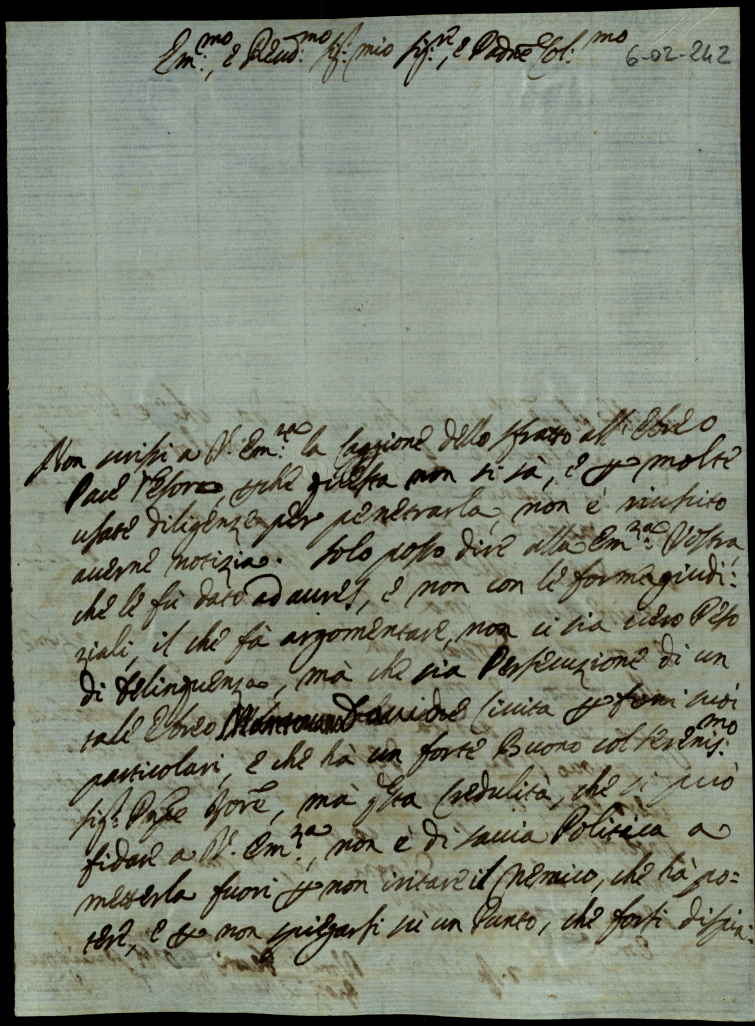 Em.mo, e Reud.mo sig: mio sig.re, e Padne Col:mo 6-02-242
Non scrissi a V. Em.za la caggione dello sfratto all'Ebreo
Pace Pesoro perche questa non si sà, e per molte
usate diligenze per penetrarla, non è riuscito
averne notizia. Solo posso dire alla Em.za Vostra,
che le fù dato ad aures, e non con le forme giudi:
ziali, il che fà argomentare, non ci sia vero Peso
di delinquenza, mà che sia Persecuzione di un
tale Ebreo Davide Civita per fini suoi
particolari, e che hà un forte Buono col Serenis:mo
sig: Pnpe, mà qsta Credulità, che si può
fidare a V. Em.za, non è di savia Politica a
metterla fuori per non irritare il Nemico, che hà po=
tere, e per non spiegarsi sù un Punto, che forsi dispia: